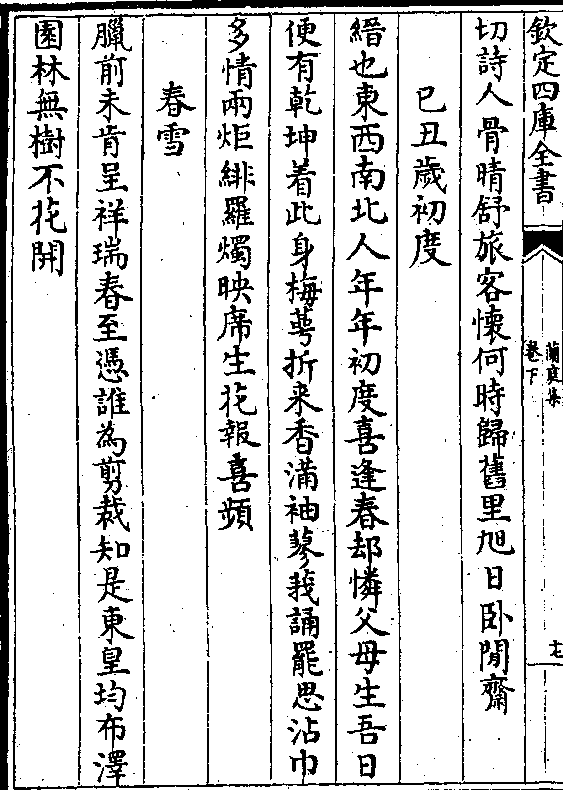 欽定四庫全書
蘭庭集
卷下
切詩人骨晴舒旅客懷何時歸舊里旭日卧閒齋
己丑歲初度
縉也東西南北人年年初度喜逢春却憐父母生吾日
便有乾坤着此身梅萼折来香滿袖蓼莪誦罷思沾巾
多情兩炬緋羅燭映席生花報喜頻
春雪
臘前未肯呈祥瑞春至憑誰為剪裁知是東皇均布澤
園林無樹不花開